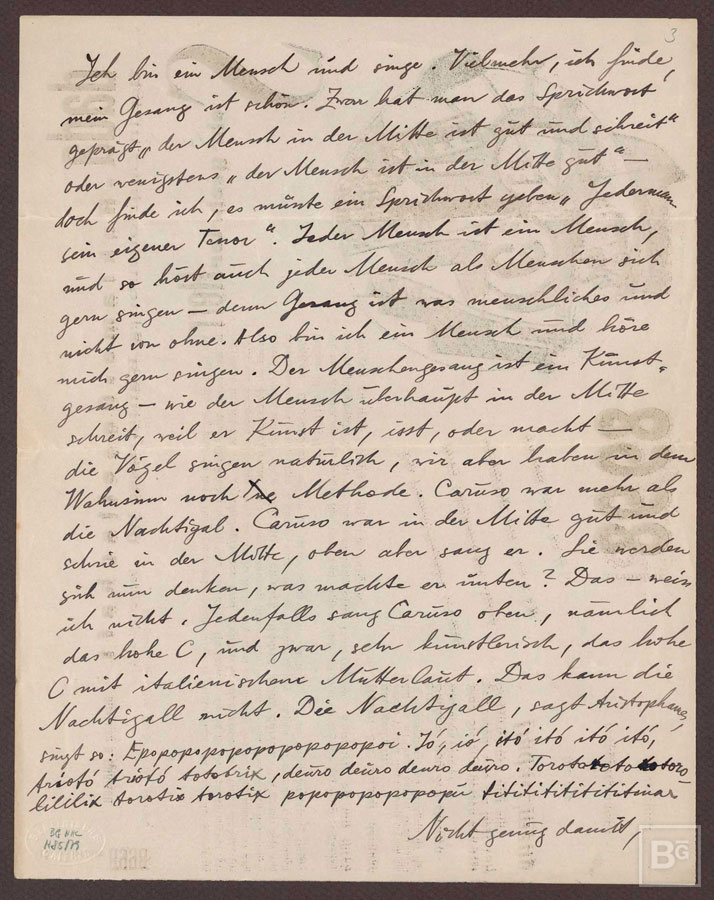 3
Ich bin ein Mensch und singe. Vielmehr, ich finde,
mein Gesang ist schön. Zwar hat man das Sprichwort
geprägt „der Mensch in der Mitte ist gut und schreit“
oder wenigstens „der Mensch ist in der Mitte gut“ —
doch finde ich, es müsste ein Sprichwort geben „Jedermann
sein eigener Tenor“. Jeder Mensch ist ein Mensch,
und so hört auch jeder Mensch als Menschen sich
gern singen — denn Gesang ist was menschliches und
nicht von ohne. Also bin ich ein Mensch und höre
mich gern singen. Der Menschengesang ist ein Kunst-
gesang — wie der Mensch überhaupt in der Mitte
schreit, weil er Kunst ist, isst, oder macht —
die Vögel singen natürlich, wir aber haben in dem
Wahnsinn noch Methode. Caruso war mehr als
die Nachtigal. Caruso war in der Mitte gut und
schrie in der Mitte, oben aber sang er. Sie werden
sich nun denken, was machte er unten? Das — weiss
ich nicht. Jedenfalls sang Caruso oben, nämlich
das hohe C, und zwar, sehr künstlerisch, das hohe
C mit italienischem Mutterlaut. Das kann die
Nachtigall nicht. Die Nachtigall, sagt Aristophanes,
singt so: Epopopopopopopopopopopoi. Ió, ió, itó itó itó itó,
triotó triotó totobrix, deuro deuro deuro deuro. Torotototototoro
lililix torotix torotix popopopopopopü tititititititinax
Nicht genug damit,
BG HHC
1485/79
BG